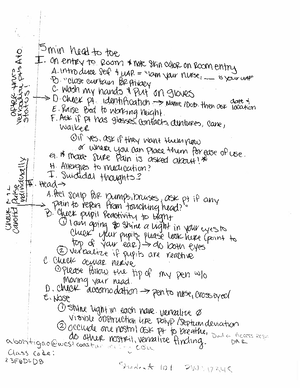 5 min head to toe
I. on entry to Room * note skin color on Room entry
A. introduce self & UAP → "I am your nurse, ___ is your UAP"
B. "close curtain for privacy
C. Wash my hands & Put on gloves
D. Check pt. identification → Name, DOB then ask date & location
E. Raise Bed to working height.
F. Ask if pt has glasses, contacts, dentures, cane,
walker
① if yes, ask if they want them now
or where you can place them for ease of use.
G. * make sure Pain is asked about! *
H. Allergies to medication?
I. Suicidal thoughts?
II. Head →
A. Feel scalp for bumps, bruises, ask pt if any
pain to report from touching head?
B. Check pupil Reactivity to Light
① I am going to shine a light in your eyes to
check your pupils. Please look here (point to
top of your ear) → do both eyes
② verbalize if pupils are reactive
C. Check ocular nerve.
① Please follow the tip of my pen w/o
moving your head.
D. Check accomodation → pen to nose, cross eyed
E. Nose
① Shine light on each nare verbalize Ø
visible obstruction like polyp / septum deviation
② occlude one nostril ask pt to breathe,
do other nostril, verbalize finding.
Class code: